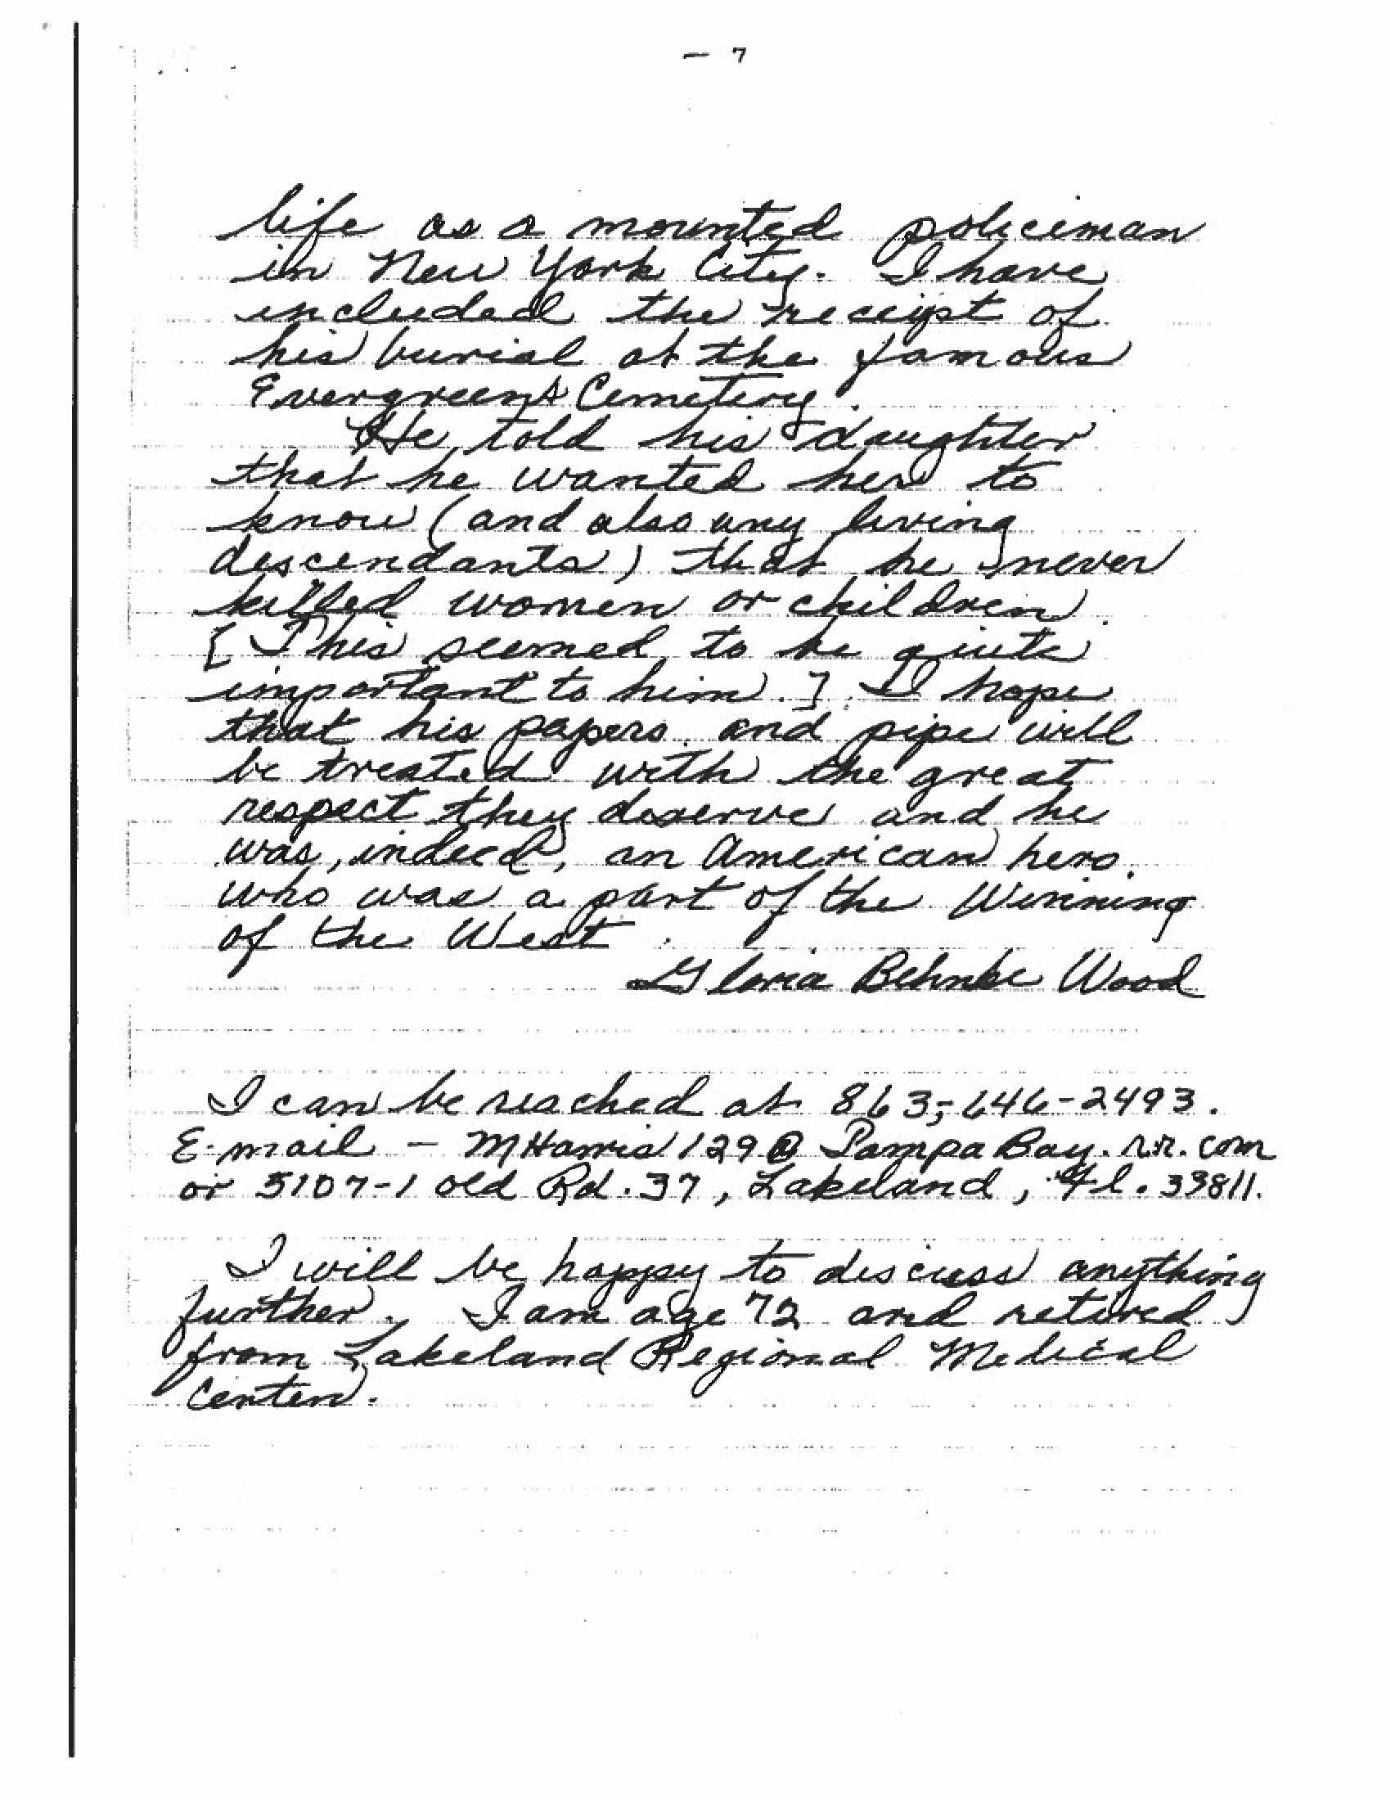 — 7
life as a mounted policeman
in New York City. I have
included the receipt of
his burial at the famous
Evergreens Cemetery.
He told his daughter
that he wanted her to
know (and also any living
descendants) that he never
killed women or children.
[This seemed to be quite
important to him.] I hope
that his papers and pipe will
be treated with the great
respect they deserve and he
was, indeed, an American hero
who was a part of the Winning
of the West.
Gloria Behnke Wood
I can be reached at 863-646-2493.
E-mail – MHarris129@TampaBay.rr.com
or 5107-1 old Rd. 37, Lakeland, Fl. 33811.
I will be happy to discuss anything
further. I am age 72 and retired
from Lakeland Regional Medical
Center.